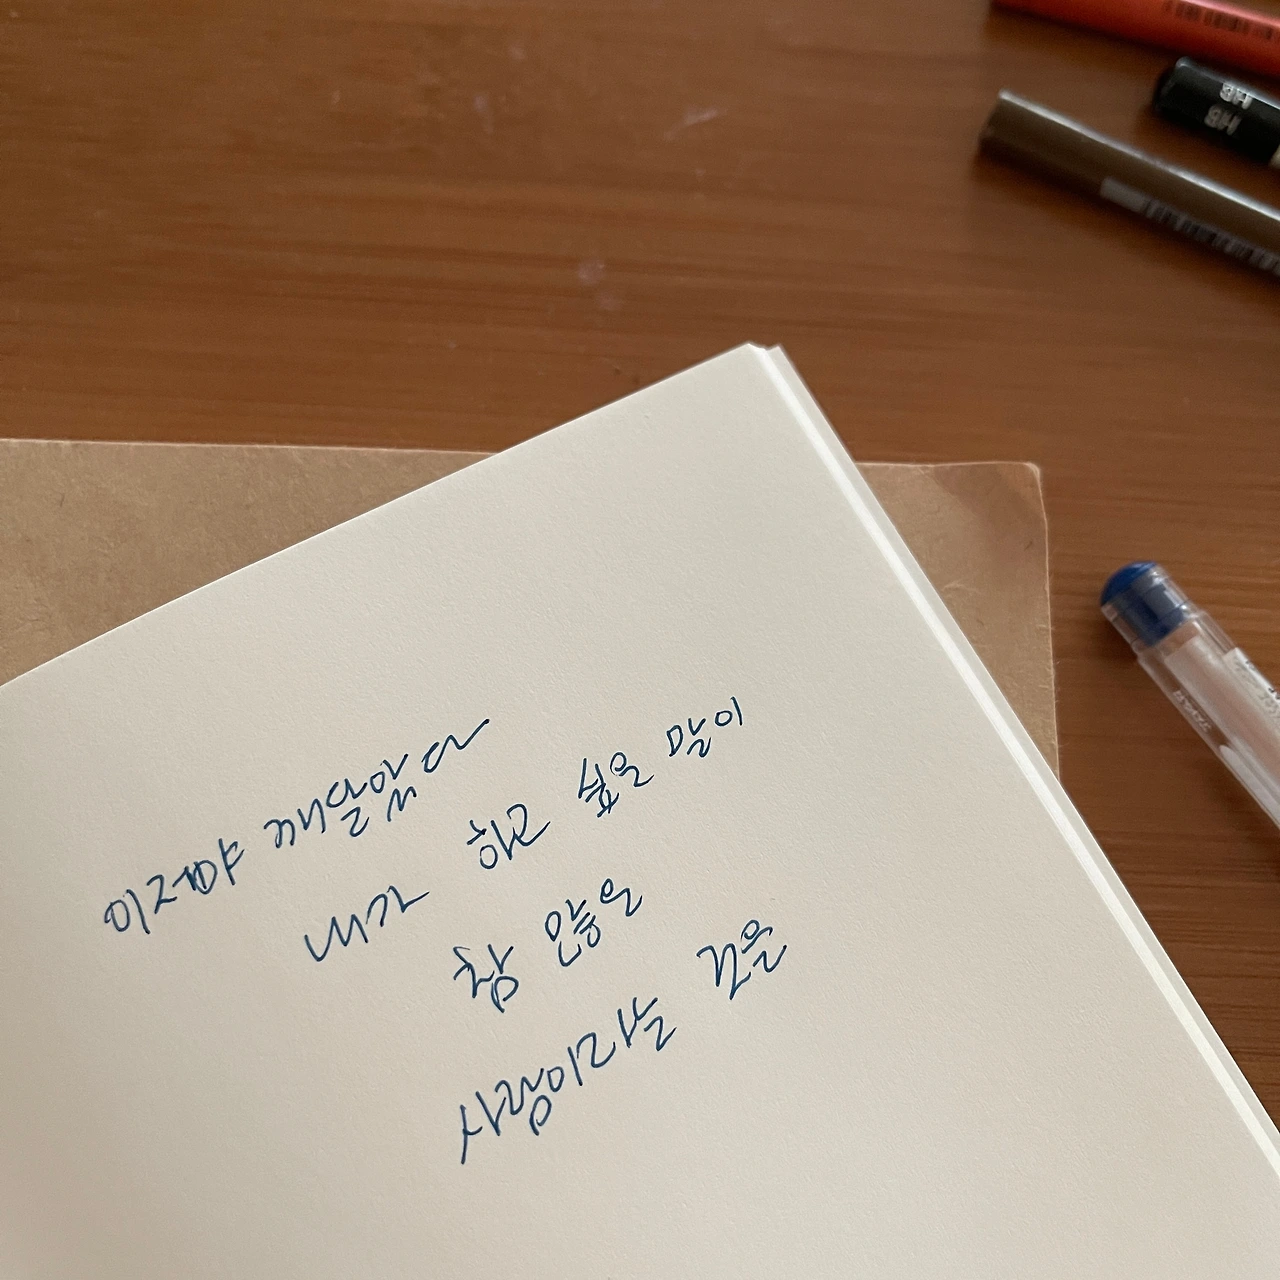 이제야 깨달았다
내가 하고 싶은 말이
참 많은
사람이라는 것을
HB
HB